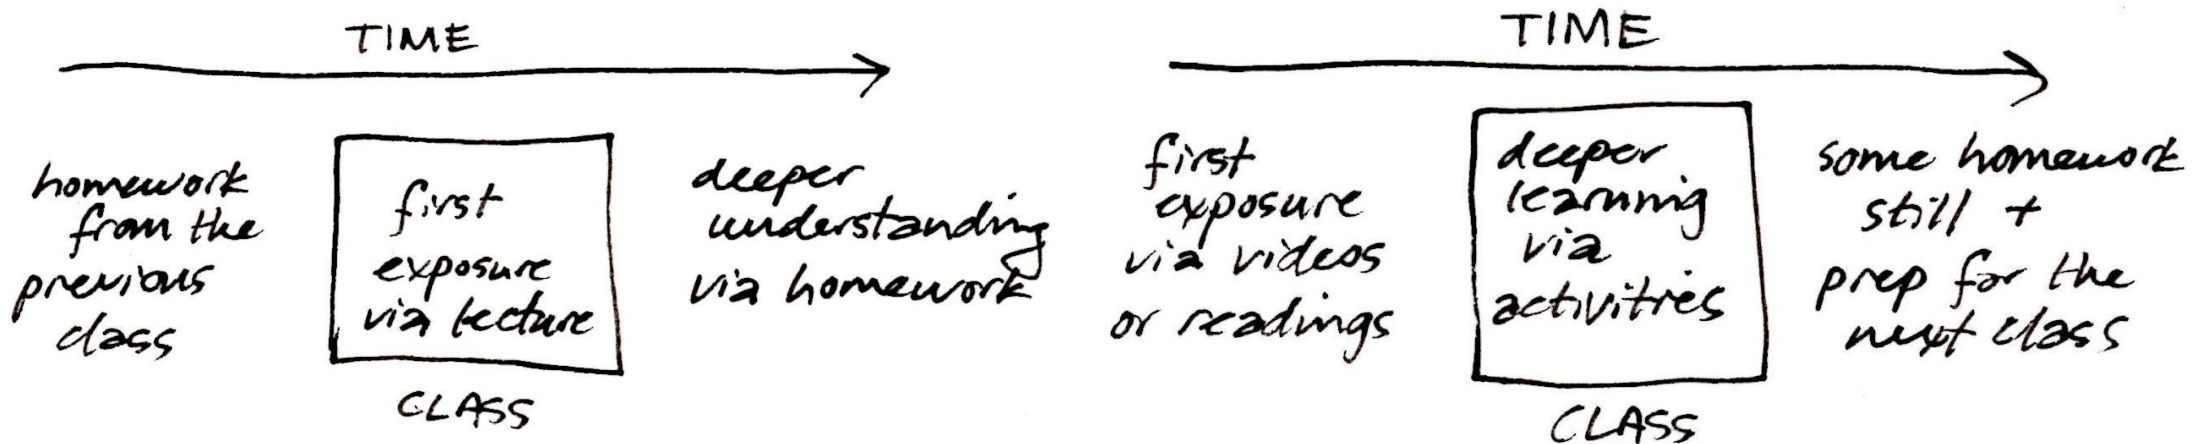 TIME
homework
from the
previous
class
first
exposure
via lecture
CLASS
deeper
understanding
via homework
TIME
first
exposure
via videos
or readings
deeper
learning
via
activities
CLASS
some homework
still +
prep for the
next class